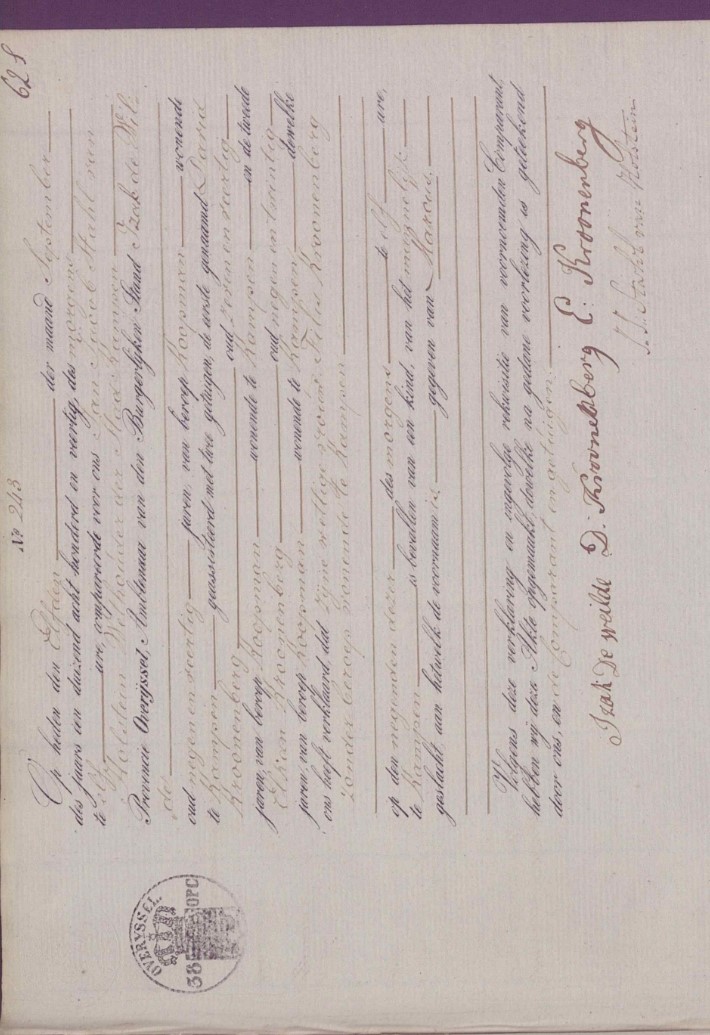 62 S
No 243
Op heden den Elfden der maand September
des jaars een duizend acht honderd en veertig, des morgens
te elf ure, compareerde voor ons Jan Jacob Stahl van
Holstein Wethouder der Stad Kampen
Provincie Overijssel, Ambtenaar van den Burgerlijken Stand Izak de Wil
de
oud negen en veertig jaren, van beroep Koopman wonende
te Kampen geassisteerd met twee getuigen, de eerste genaamd David
Kroonenberg oud zeven en veertig
jaren, van beroep Koopman wonende te Kampen en de tweede
Elkan Kroonenberg oud negen en twintig
jaren, van beroep Koopman wonende te Kampen dewelke
ons heeft verklaard, dat zijne wettige vrouw Kroonenberg
zonder beroep wonende te Kampen
op den negenden dezer des morgens te elf ure,
te Kampen is bevallen van een kind, van het mannelijk
geslacht aan hetwelk de voornaam is gegeven van Marcus.
Volgens deze verklaring en ingevolge rekwisitie van voornoemden Comparant,
hebben wij deze Akte opgemaakt, dewelke na gedane voorlezing is geteekend
door ons, en de Comparant en getuigen.
Izak De weilde D: Kroonenberg E: Kroonenberg
J. J. Stahl van Holstein
OVERYSSEL
38 OPC